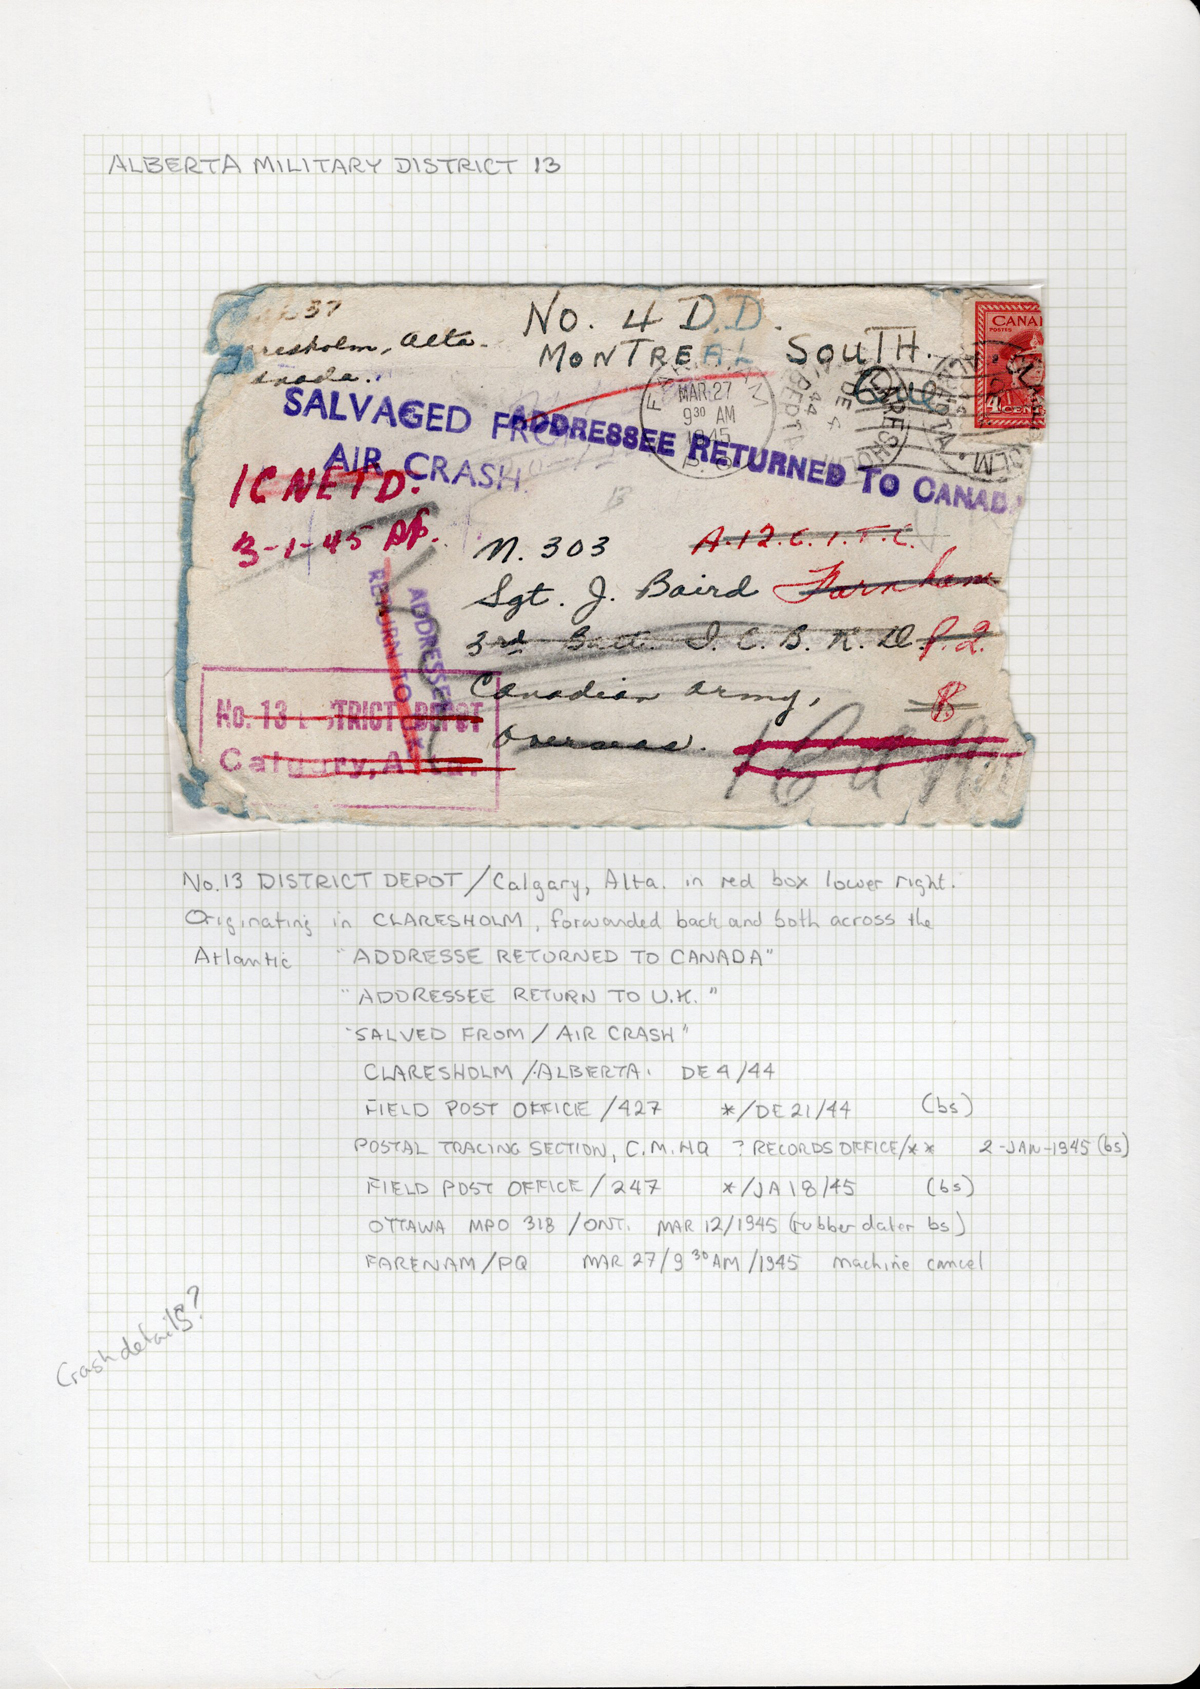 ALBERTA MILITARY DISTRICT 13
37
resholm, Alta.
nada.
No. 4 D.D.
MONTREAL SOUTH.
Que
CANA
POSTES
4 CEN
MAR 27
9 30 AM
1945
P.Q
CLARESHOLM
ALBERTA
DE 4
44
SALVAGED FROM
AIR CRASH
ADDRESSEE RETURNED TO CANAD
1CNETD.
3-1-45
M. 303
A.12.C.I.T.C.
Sgt. J. Baird
Farnham
3rd Batt. I. C. B. R. D.
P.Q.
Canadian Army,
Overseas.
ADDRESSEE
RETURN TO
No. 13 DISTRICT DEPOT
Calgary, Alta.
No.13 DISTRICT DEPOT/Calgary, Alta. in red box lower right.
Originating in CLARESHOLM, forwarded back and both across the
Atlantic "ADDRESSE RETURNED TO CANADA"
"ADDRESSEE RETURN TO U.K."
"SALVED FROM/AIR CRASH"
CLARESHOLM/ALBERTA. DE 4/44
FIELD POST OFFICE/427 */DE 21/44 (bs)
POSTAL TRACING SECTION, C.M.HQ ? RECORDS OFFICE/** 2-JAN-1945 (bs)
FIELD POST OFFICE/247 */JA 18/45 (bs)
OTTAWA MPO 318/ONT. MAR 12/1945 (rubber dater bs)
FARENAM/PQ MAR 27/9 30 AM/1945 machine cancel
Crash details?